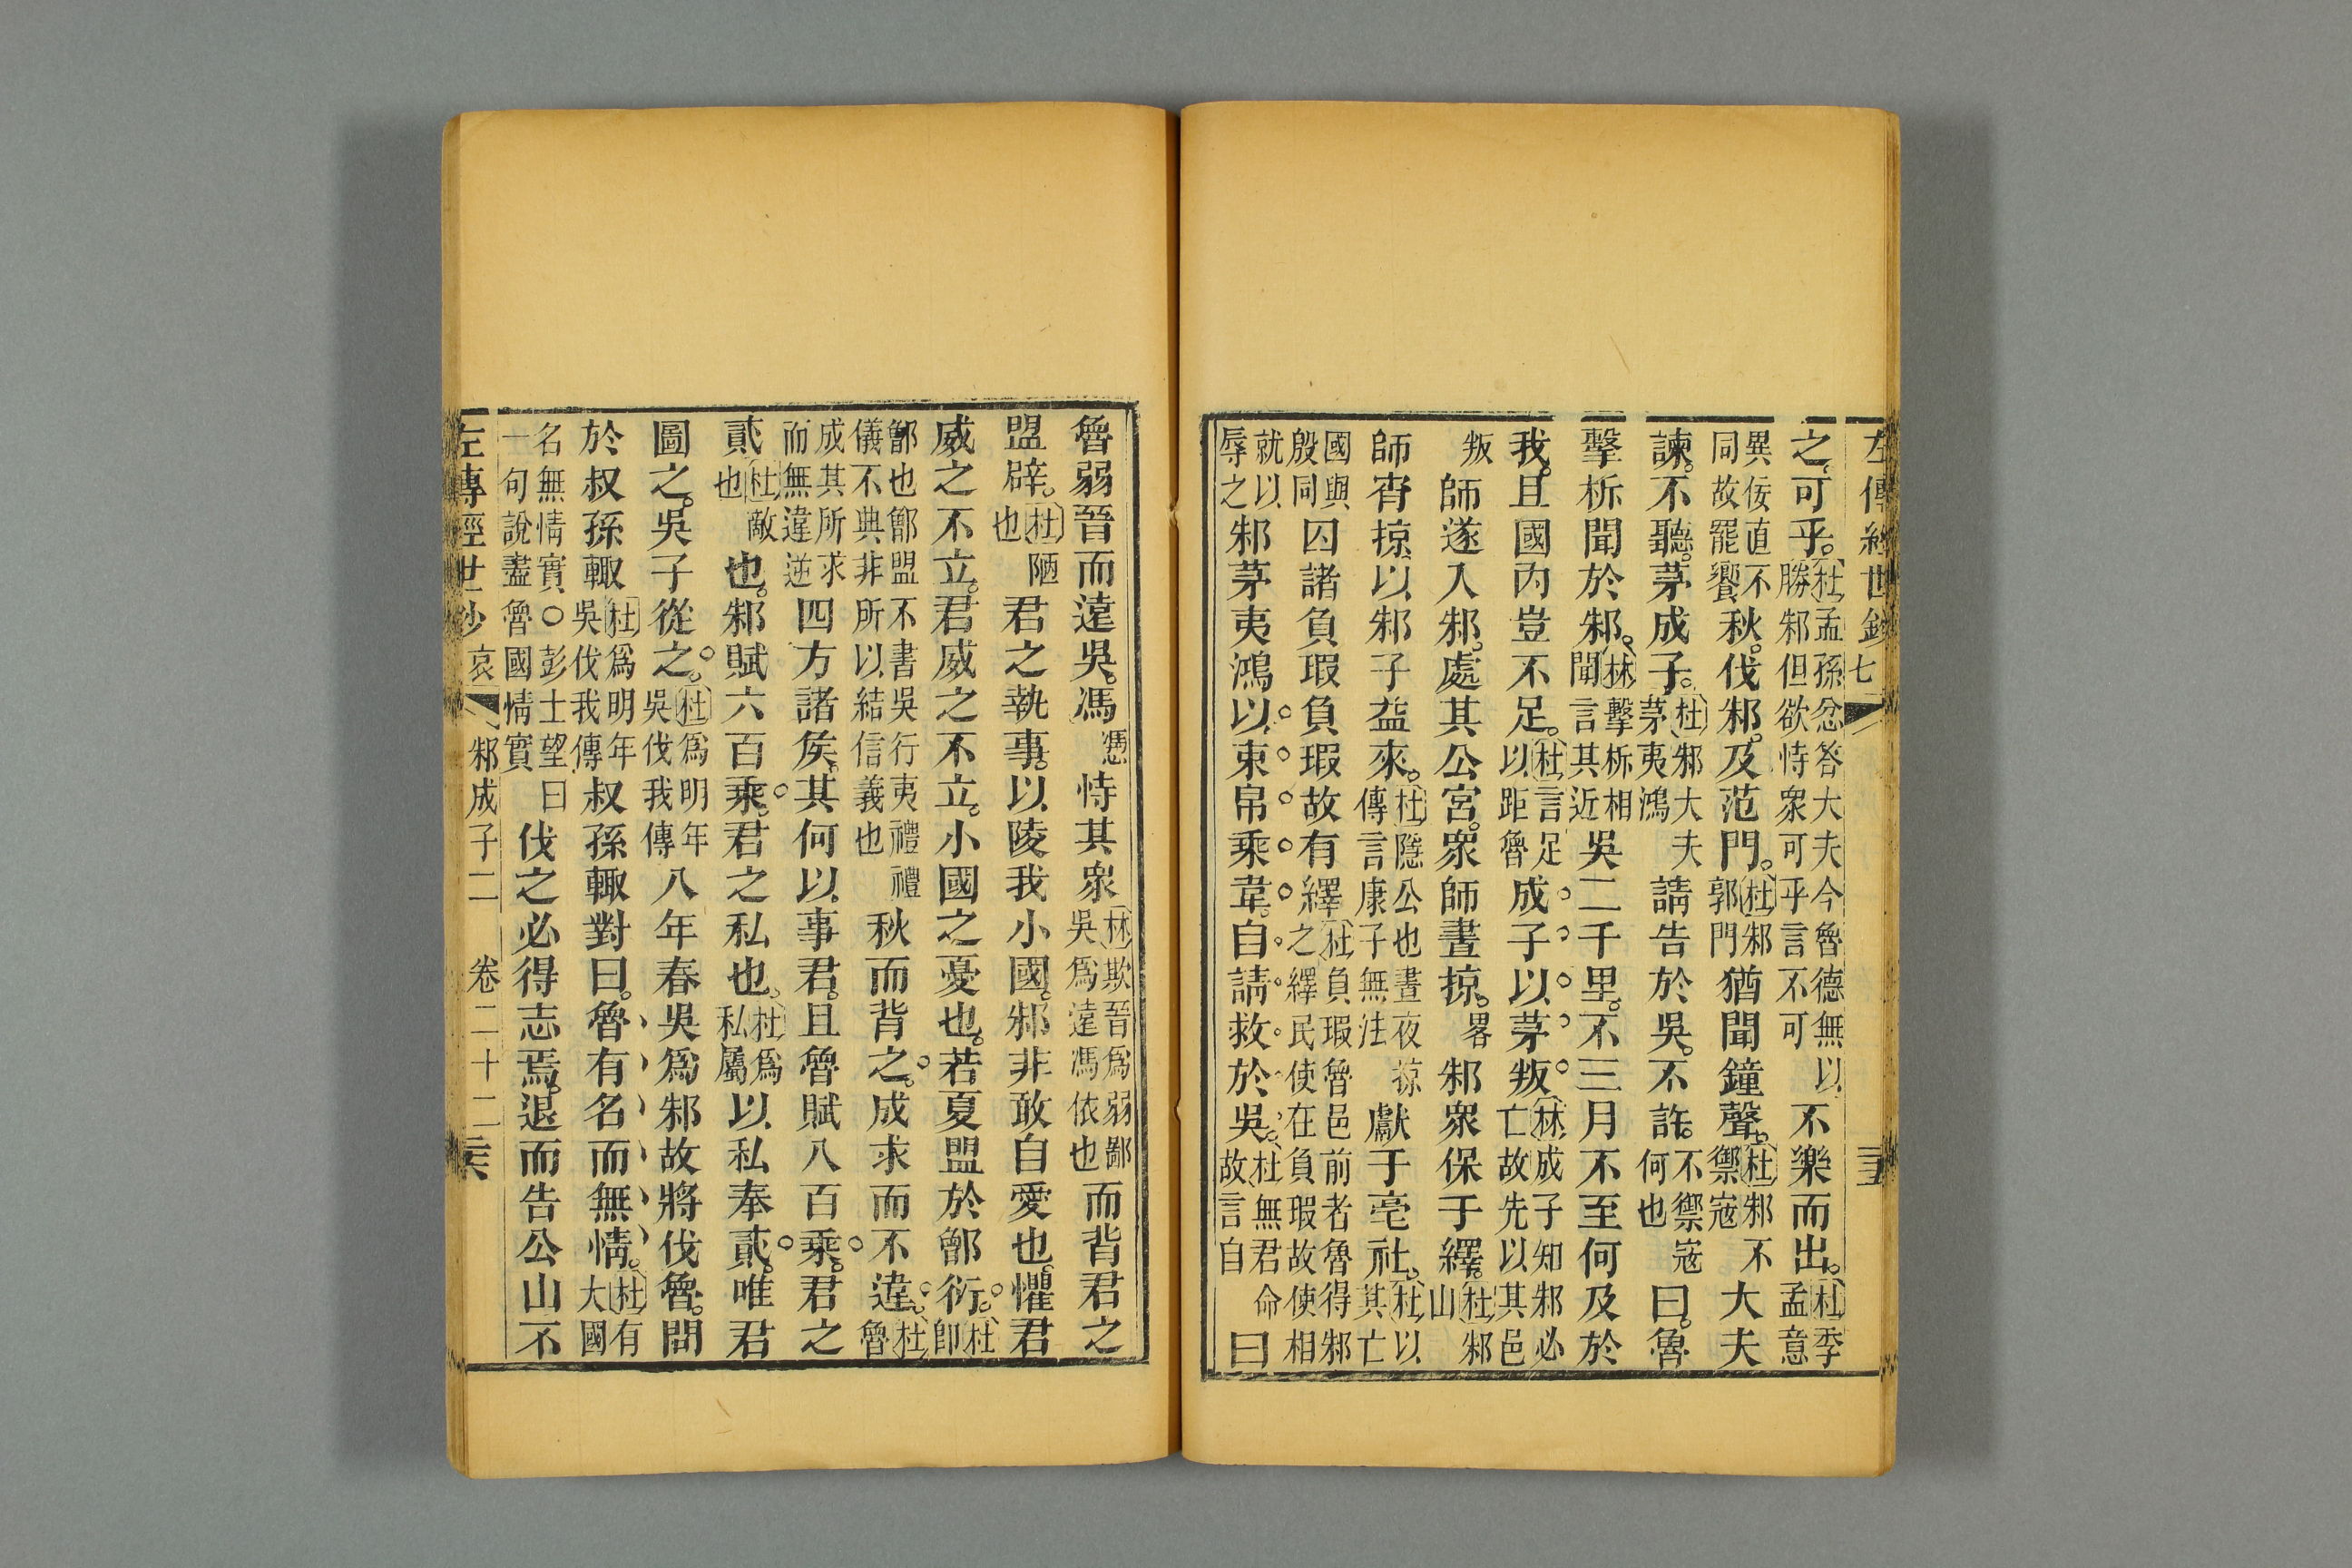 左傳經世鈔七 三五
之可乎杜孟孫忿答大夫今魯德無以勝邾但欲恃衆可乎言不可不樂而出杜季孟意
異佞直不同故罷饗秋伐邾及范門杜邾郭門猶聞鐘聲杜邾不禦寇大夫
諫不聽茅成子杜邾大夫茅夷鴻請告於吳不許不禦寇何也曰魯
擊柝聞於邾林擊柝相聞言其近吳二千里不三月不至何及於
我且國內豈不足杜言足以距魯成子以茅叛林成子知邾必亡故先以其邑
叛師遂入邾處其公宮衆師晝掠畧邾衆保于繹杜邾山
師宵掠以邾子益來杜隱公也晝夜掠傳言康子無法獻于亳社杜以其亡
國與殷同囚諸負瑕負瑕故有繹杜負瑕魯邑前者魯得邾之繹民使在負瑕故使相
就以辱之邾茅夷鴻以束帛乘韋自請救於吳杜無君命故言自曰
魯弱晉而遠吳馮憑恃其衆林欺晉爲弱鄙吳爲遠馮依也而背君之
盟辟杜陋也君之執事以陵我小國邾非敢自愛也懼君
威之不立君威之不立小國之憂也若夏盟於鄫衍杜即
鄫也鄫盟不書吳行夷禮禮儀不典非所以結信義也秋而背之成求而不違杜魯
成其所求而無違逆四方諸侯其何以事君且魯賦八百乘君之
貳杜敵也也邾賦六百乘君之私也杜爲私屬以私奉貳唯君
圖之吳子從之杜爲明年吳伐我傳八年春吳爲邾故將伐魯問
於叔孫輒杜爲明年吳伐我傳叔孫輒對曰魯有名而無情杜有大國
名無情實○彭士望曰一句說盡魯國情實伐之必得志焉退而告公山不
左傳經世鈔哀 邾成子二 卷二十二 三六